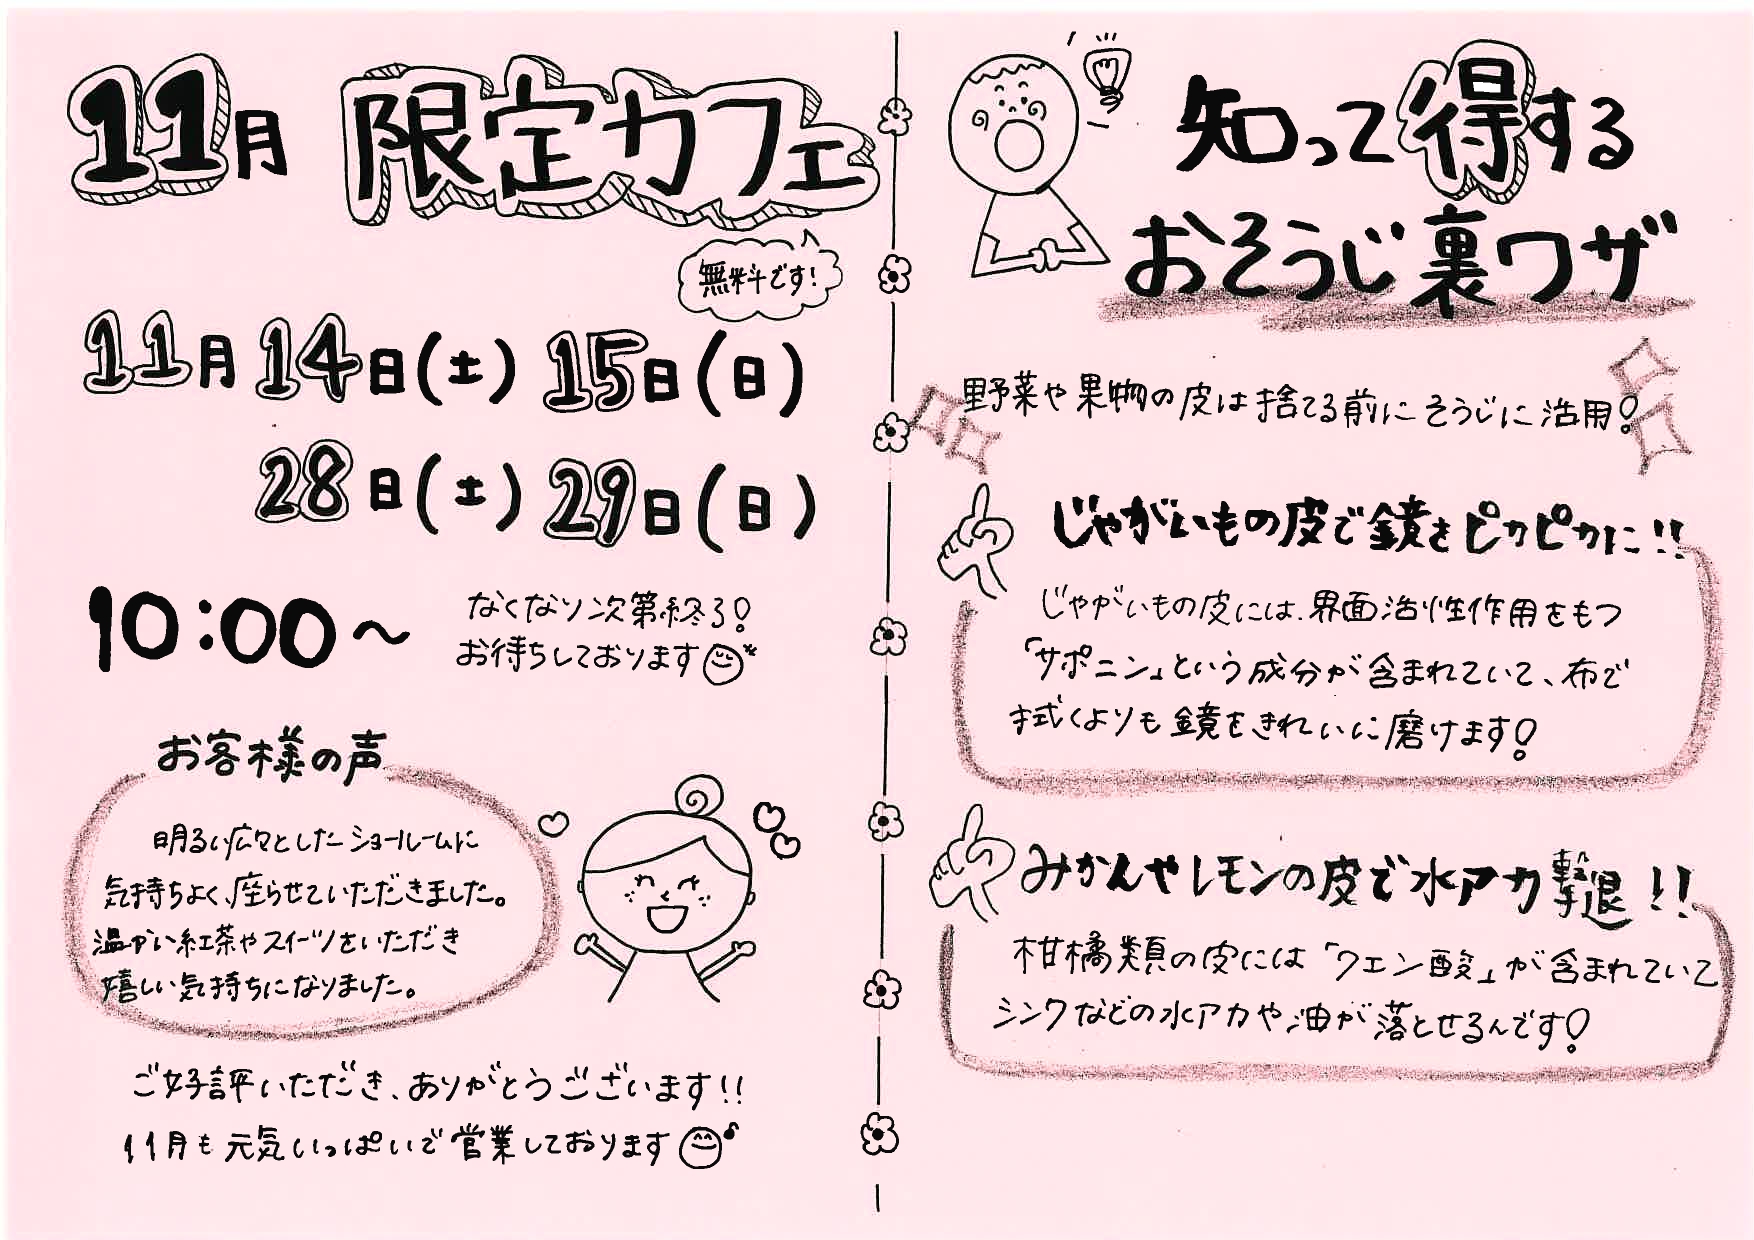 11月 限定カフェ
無料です!
11月14日(土) 15日(日)
28日(土) 29日(日)
10:00〜
なくなり次第終了!
お待ちしております
お客様の声
明るい広々としたショールームに
気持ちよく、座らせていただきました。
温かい紅茶やスイーツをいただき
嬉しい気持ちになりました。
ご好評いただき、ありがとうございます!!
11月も元気いっぱいで営業しております
知って得する
おそうじ裏ワザ
野菜や果物の皮は捨てる前にそうじに活用!
じゃがいもの皮で鏡をピカピカに!!
じゃがいもの皮には、界面活性作用をもつ
「サポニン」という成分が含まれていて、布で
拭くよりも鏡をきれいに磨けます!
みかんやレモンの皮で水アカ撃退!!
柑橘類の皮には「クエン酸」が含まれていて
シンクなどの水アカや油が落とせるんです!